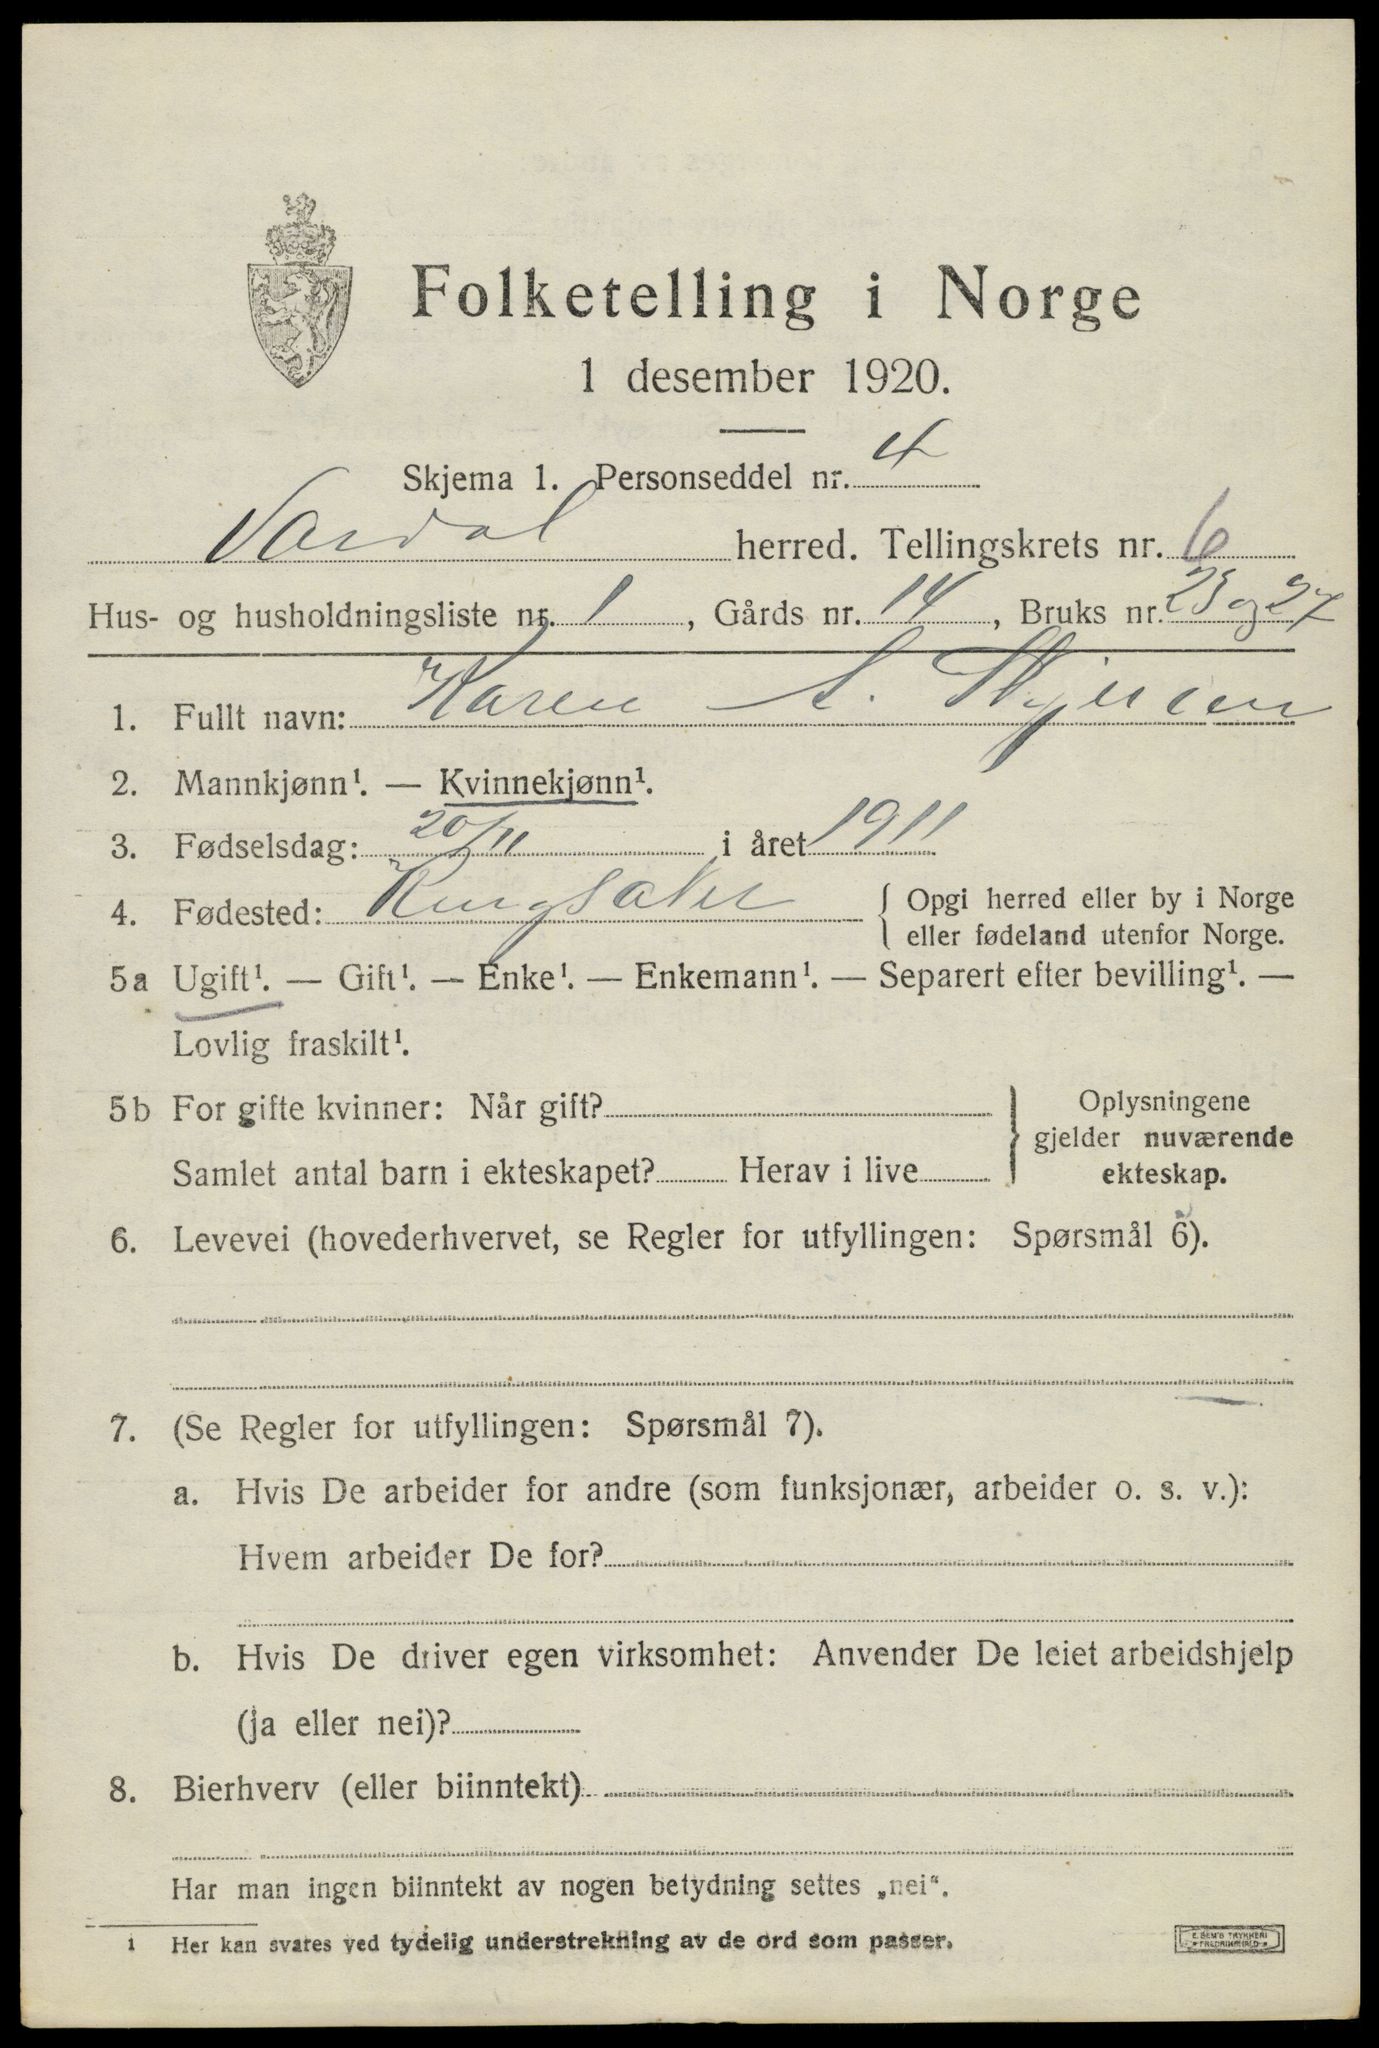 Folketelling i Norge
1 desember 1920.
Skjema 1. Personseddel nr. 4
Vardal herred. Tellingskrets nr. 6
Hus- og husholdningsliste nr. 1, Gårds nr. 14, Bruks nr. 23 og 27
1. Fullt navn: Karen S.
2. Mannkjønn¹. — Kvinnekjønn¹.
3. Fødselsdag: 20/11 i året 1911
4. Fødested: Ringsaker { Opgi herred eller by i Norge
eller fødeland utenfor Norge.
5a Ugift¹. — Gift¹. — Enke¹. — Enkemann¹. — Separert efter bevilling¹. —
Lovlig fraskilt¹.
5b For gifte kvinner: Når gift? } Oplysningene
gjelder nuværende
Samlet antal barn i ekteskapet? Herav i live ekteskap.
6. Levevei (hovederhvervet, se Regler for utfyllingen: Spørsmål 6).
7. (Se Regler for utfyllingen: Spørsmål 7).
a. Hvis De arbeider for andre (som funksjonær, arbeider o. s. v.):
Hvem arbeider De for?
b. Hvis De driver egen virksomhet: Anvender De leiet arbeidshjelp
(ja eller nei)?
8. Bierhverv (eller biinntekt)
Har man ingen biinntekt av nogen betydning settes „nei“.
1 Her kan svares ved tydelig understrekning av de ord som passer.
E. SEM'S TRYKKERI
FREDRIKSHALD